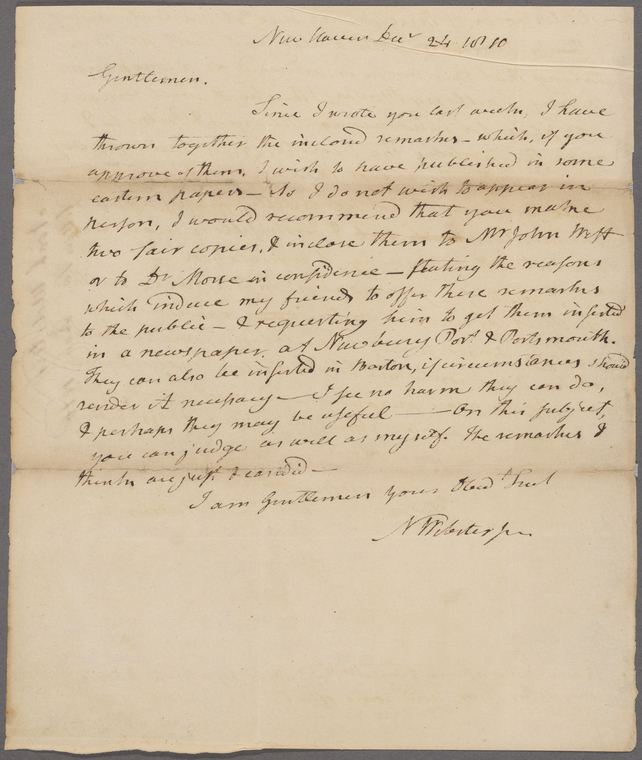 New Haven Decr 24 1810
Gentlemen.
Since I wrote you last week, I have
thrown together the inclosed remarks - which, if you
approve of them, I wish to have published in some
eastern papers - As I do not wish to appear in
person, I would recommend that you make
two fair copies, & inclose them to Mr John West
or to Dr Morse in confidence - stating the reasons
which induce my friends to offer these remarks
to the public - & requesting him to get them inserted
in a newspaper at Newbury Port & Portsmouth.
They can also be inserted in Boston, if circumstances should
render it necessary - I see no harm they can do,
& perhaps they may be useful - On this subject,
you can judge as well as myself. The remarks I
think are just & candid -
I am Gentlemen your Obedt Servt
N Webster Jun